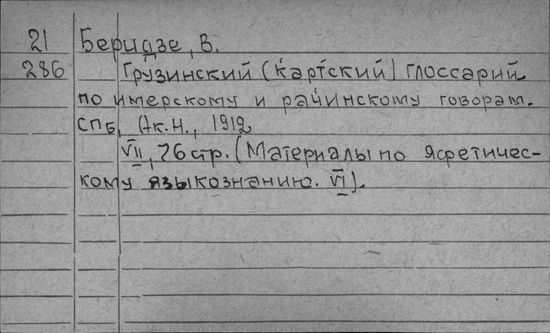 21 Беридзе, В.
286 Грузинский (картский) глоссарий
по имерскому и рачинскому говорам.
СПБ, Ак.Н., 1912
VII, 76 стр. (Материалы по яфетичес-
кому языкознанию. VI).